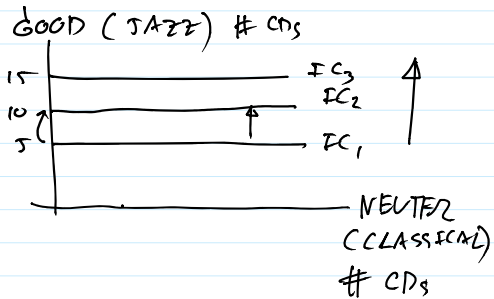 GOOD (JAZZ) # CDs
15
IC3
10
IC2
5
IC1
NEUTER
(CLASSICAL)
# CDs